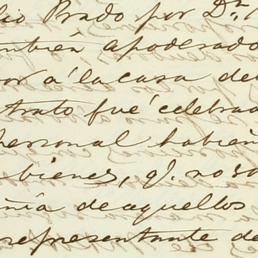 lio Prado por Dn
mbién apoderado
or á la casa de
trato fué celebra
personal habien
bienes, q. no so
ñía de aquellos
representante de